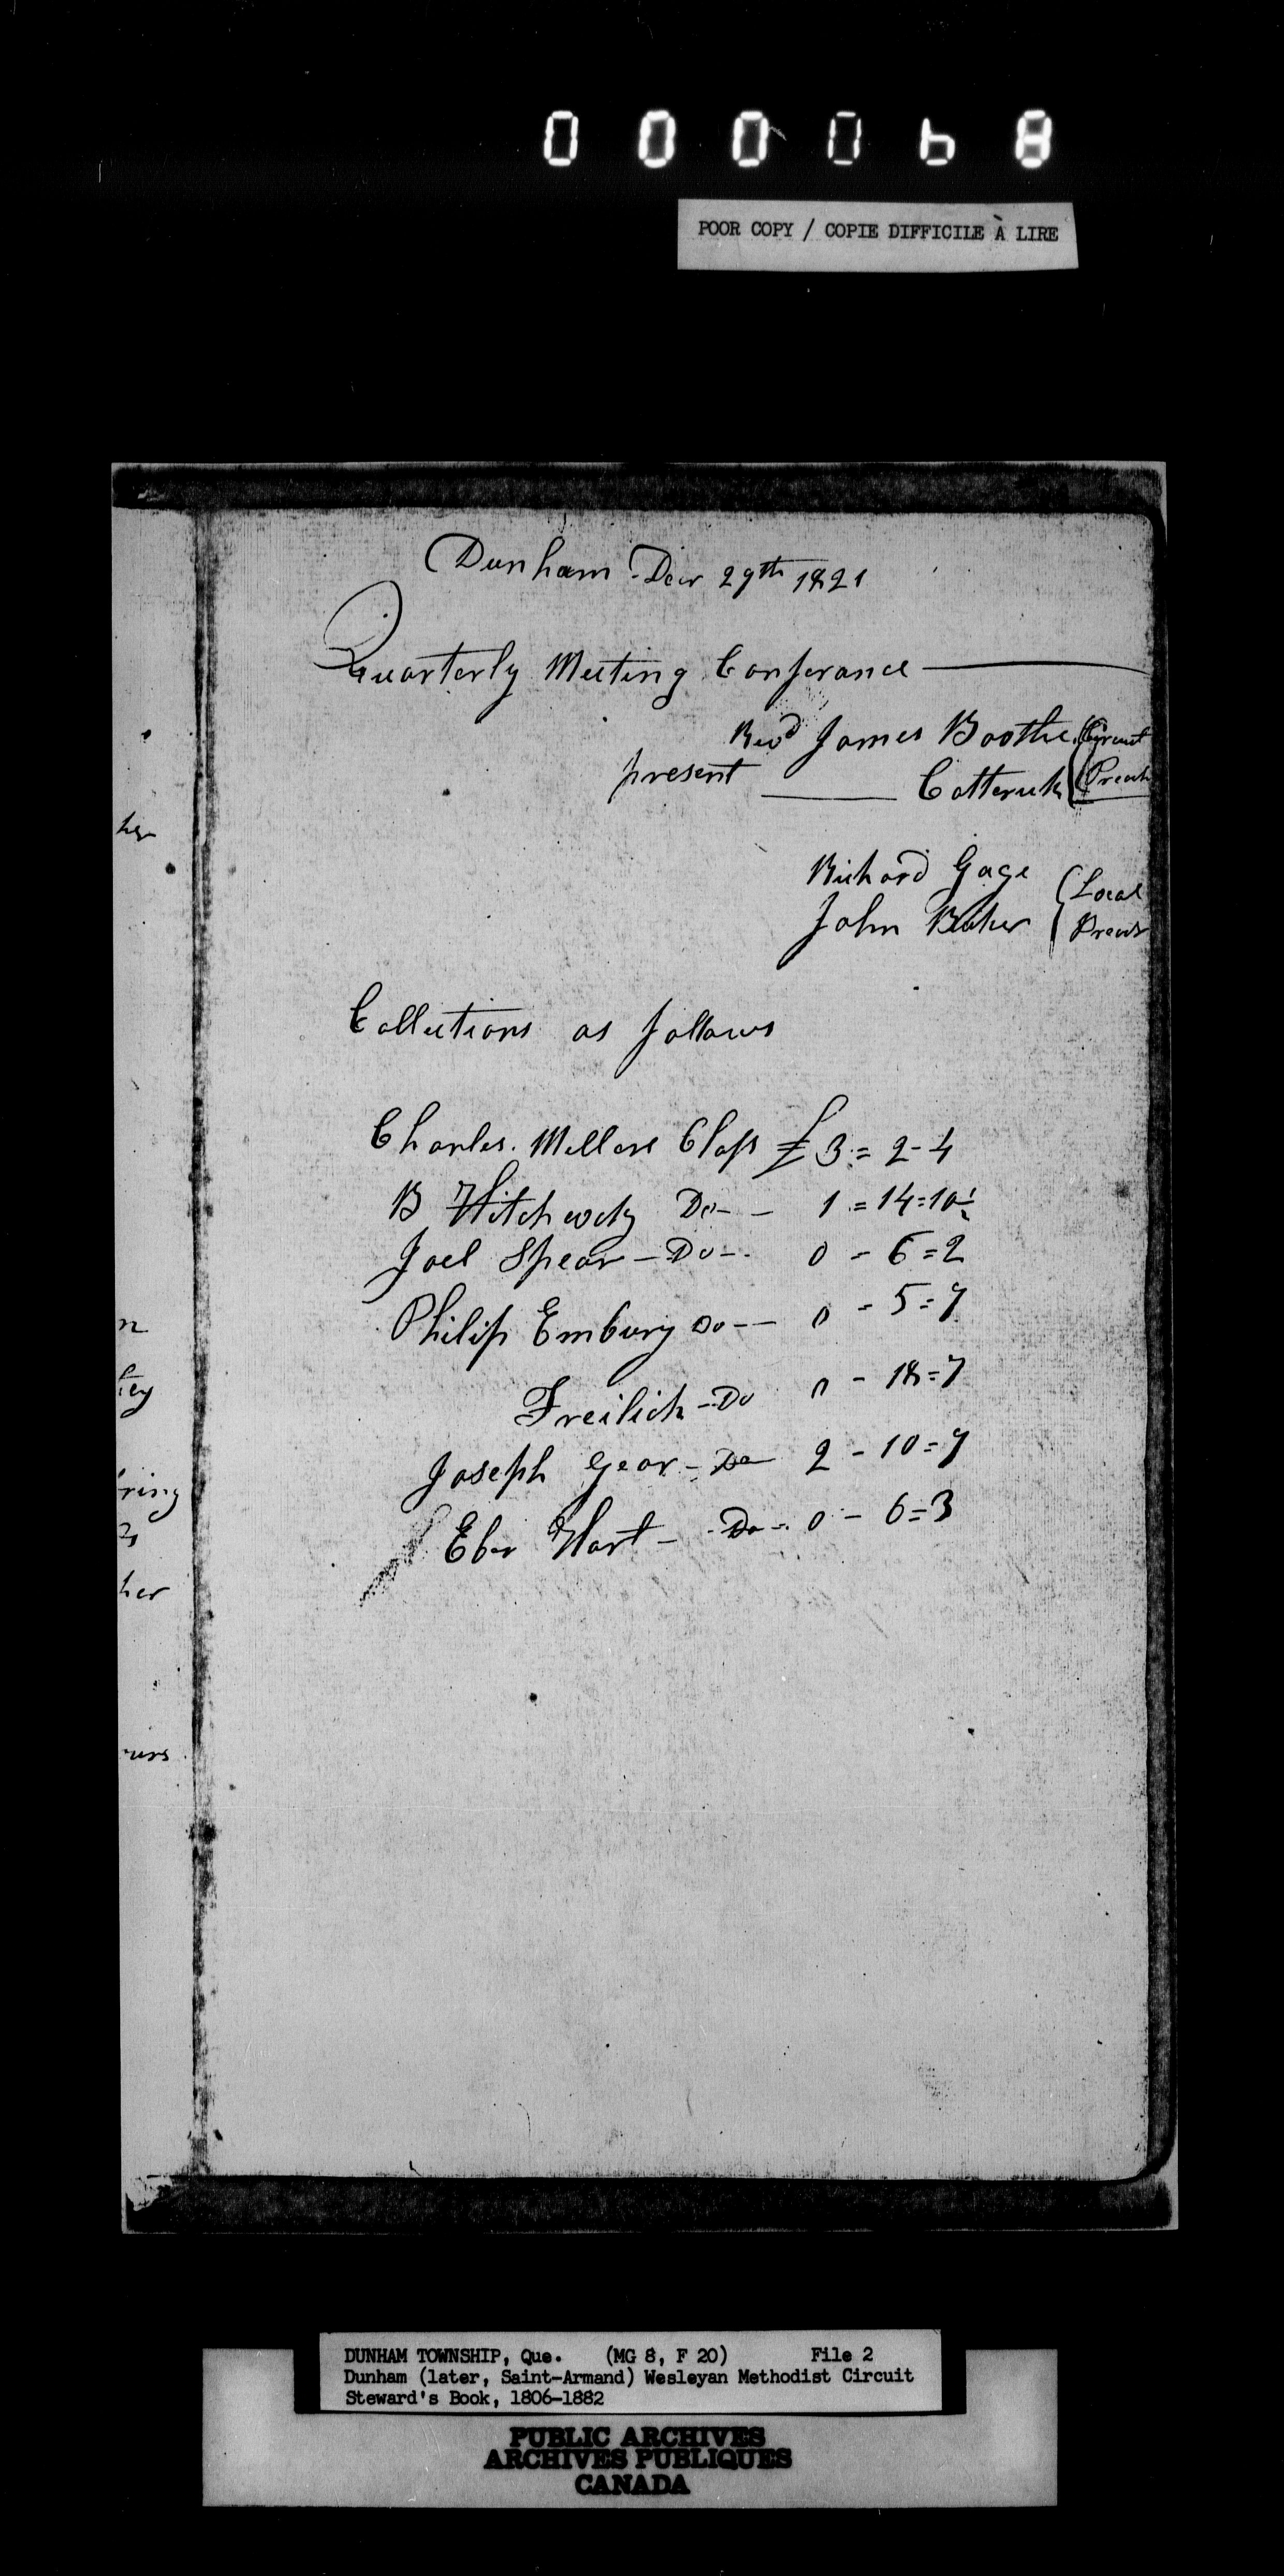 000068
POOR COPY / COPIE DIFFICILE À LIRE
Dunham Decr 29th 1821
Quarterly Meeting Conferance
Revd James Boothe Circuit
present ——— Catterick Preach
Richard Gage Local
John Baker Preachr
Collections as follows
Charles Millers Class £ 3 = 2 - 4
B Hitchcock Do - - 1 = 14 = 10½
Joel Spear - Do - 0 - 6 = 2
Philip Embury Do - - 0 - 5 = 7
Freilich - Do 0 - 18 = 7
Joseph Gear - Do 2 - 10 = 7
Eber Hart - Do = 0 - 6 = 3
her
n
tey
ring
her
urs
DUNHAM TOWNSHIP, Que. (MG 8, F 20) File 2
Dunham (later, Saint-Armand) Wesleyan Methodist Circuit
Steward's Book, 1806-1882
PUBLIC ARCHIVES
ARCHIVES PUBLIQUES
CANADA